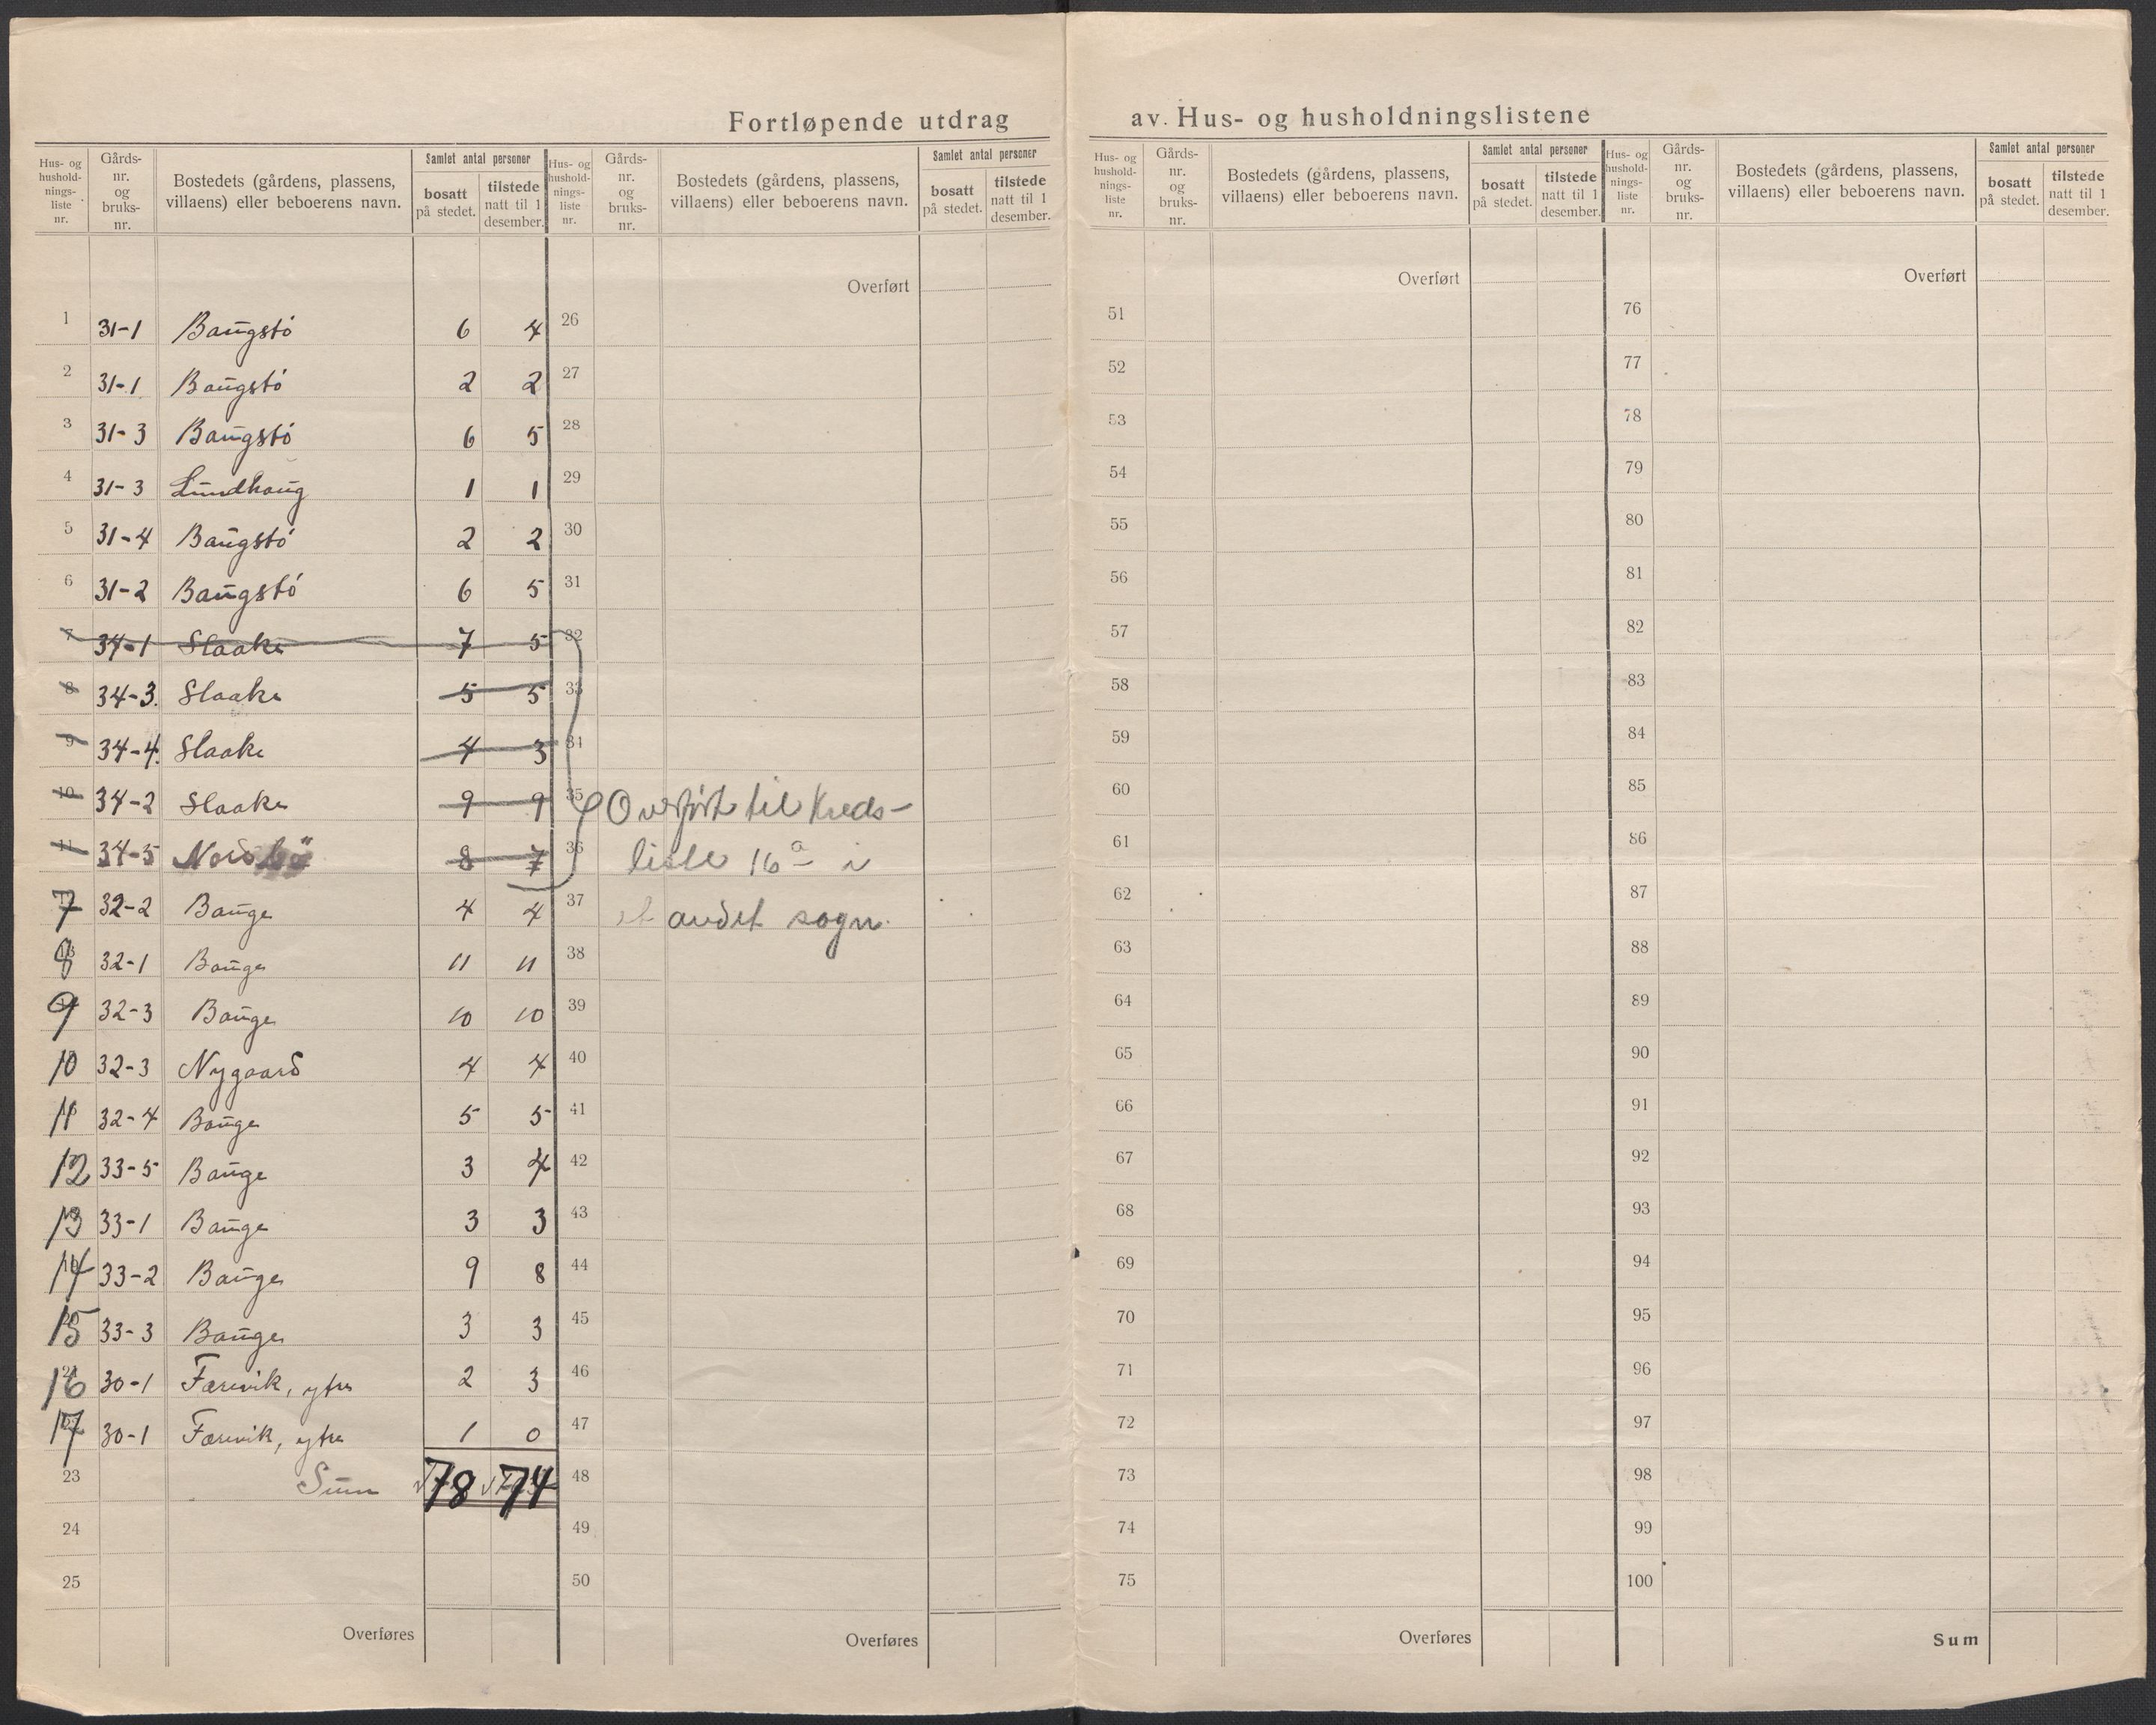 Fortløpende utdrag av Hus- og husholdningslistene
Hus- og hushold-nings-liste nr. Gårds-nr. og bruks-nr. Bostedets (gårdens, plassens, villaens) eller beboerens navn. Samlet antal personer bosatt på stedet. tilstede natt til 1 desember.
Hus- og hushold-nings-liste nr. Gårds-nr. og bruks-nr. Bostedets (gårdens, plassens, villaens) eller beboerens navn. Samlet antal personer bosatt på stedet. tilstede natt til 1 desember.
Hus- og hushold-nings-liste nr. Gårds-nr. og bruks-nr. Bostedets (gårdens, plassens, villaens) eller beboerens navn. Samlet antal personer bosatt på stedet. tilstede natt til 1 desember.
Hus- og hushold-nings-liste nr. Gårds-nr. og bruks-nr. Bostedets (gårdens, plassens, villaens) eller beboerens navn. Samlet antal personer bosatt på stedet. tilstede natt til 1 desember.
Overført Overført Overført
1 31-1 Baugstø 6 4 26 51 76
2 31-1 Baugstø 2 2 27 52 77
3 31-3 Baugstø 6 5 28 53 78
4 31-3 Lundhaug 1 1 29 54 79
5 31-4 Baugstø 2 2 30 55 80
6 31-2 Baugstø 6 5 31 56 81
7 34-1 Slaake 7 5 32 57 82
8 34-3. Slaake 5 5 33 58 83
9 34-4. Slaake 4 3 34 59 84
10 34-2 Slaake 9 9 35 Overført til Kreds- 60 85
11 34-5 Nordbø 8 7 36 liste 16a i 61 86
7 32-2 Bauge 4 4 37 et andet sogn. 62 87
8 32-1 Bauge 11 11 38 63 88
9 32-3 Bauge 10 10 39 64 89
10 32-3 Nygaard 4 4 40 65 90
11 32-4 Bauge 5 5 41 66 91
12 33-5 Bauge 3 4 42 67 92
13 33-1 Bauge 3 3 43 68 93
14 33-2 Bauge 9 8 44 69 94
15 33-3 Bauge 3 3 45 70 95
16 30-1 Farevik, ytre 2 3 46 71 96
17 30-1 Farevik, ytre 1 0 47 72 97
23 Sum 78 74 48 73 98
24 49 74 99
25 50 75 100
Overføres Overføres Overføres Sum